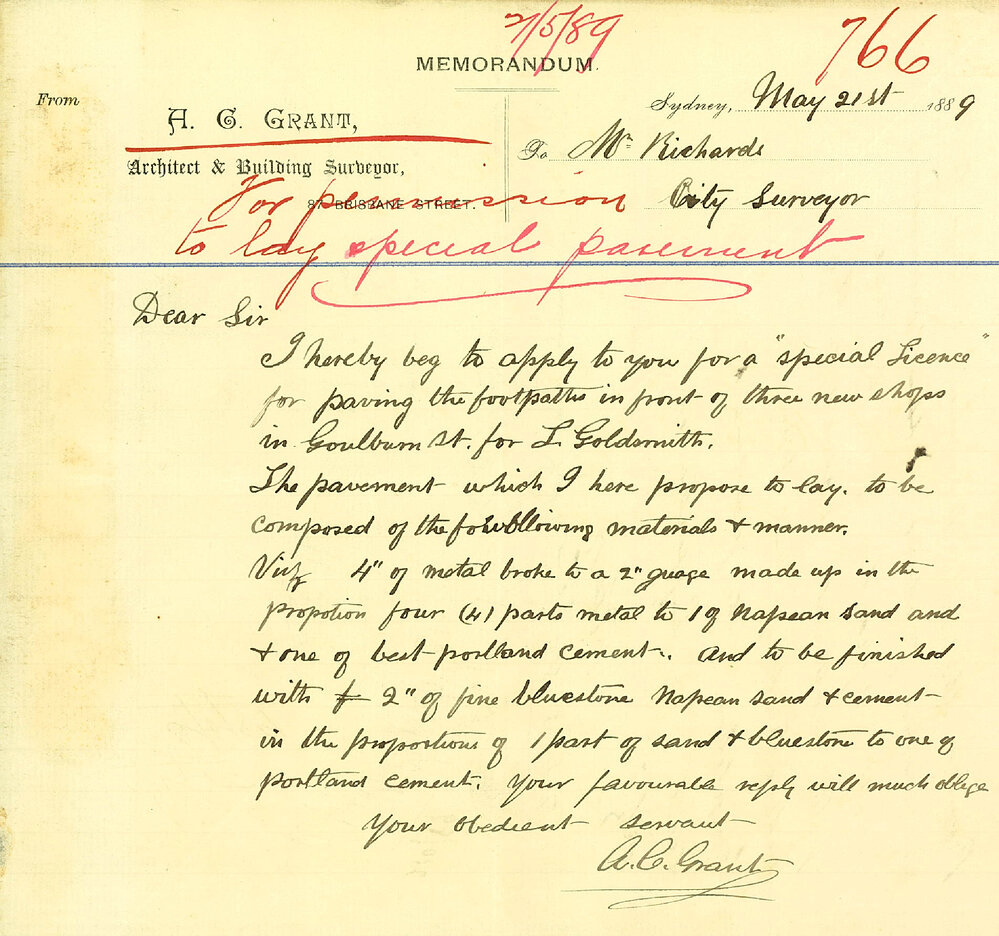 2/5/89
766
MEMORANDUM.
From
Sydney, May 21st 1889
A. C. GRANT,
To Mr Richards
Architect & Building Surveyor,
City Surveyor
87 BRISBANE STREET.
For permission
to lay special pavement
Dear Sir
I hereby beg to apply to you for a "special Licence"
for paving the footpaths in front of three new shops
in Goulburn St. for L Goldsmith.
The pavement which I here propose to lay. to be
composed of the following materials & manner.
Viz 4" of metal broke to a 2" guage made up in the
propotion four (4) parts metal to 1 of Napean sand and
& one of best portland cement. And to be finished
with 2" of fine bluestone Napean sand & cement
in the proportions of 1 part of sand & bluestone to one of
portland cement. Your favourable reply will much oblige
Your obedient servant
A. C. Grant